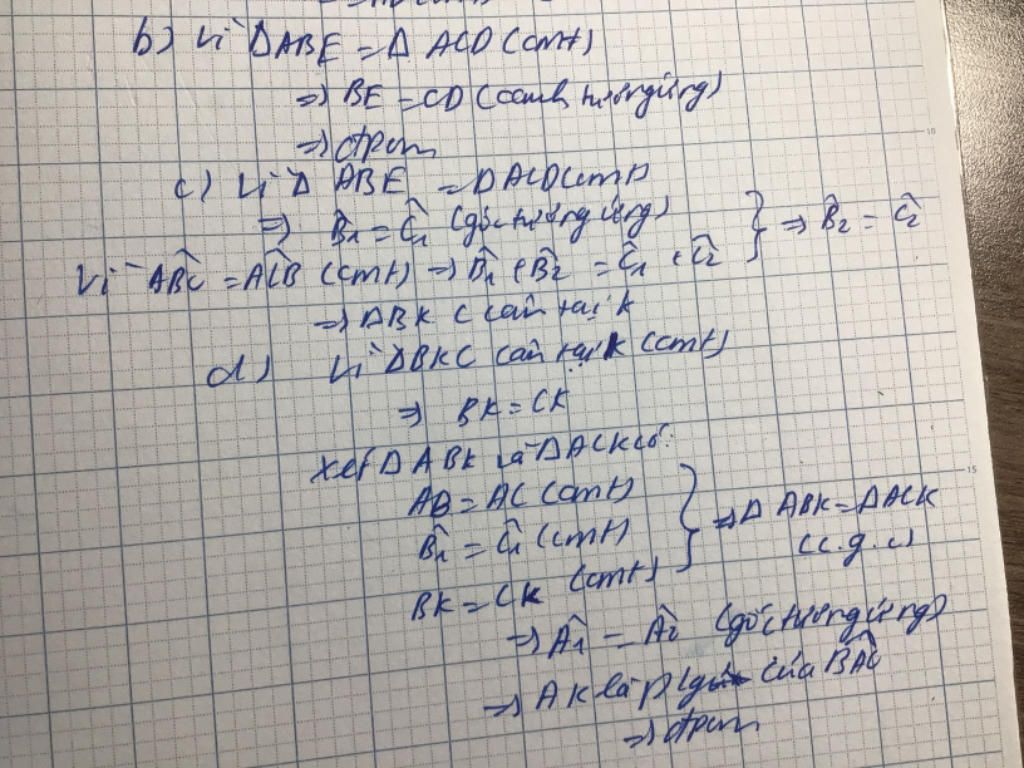 b) Vì ΔABE = Δ ACD (cmt)
⇒ BE = CD (cạnh tương ứng)
⇒ đpcm
c) Vì Δ ABE = ΔACD (cmt)
⇒ B̂₁ = Ĉ₁ (góc tương ứng)
Vì ABC = ACB (cmt) ⇒ B̂₁ + B̂₂ = Ĉ₁ + Ĉ₂ } ⇒ B̂₂ = Ĉ₂
⇒ ΔBKC cân tại K
d) Vì ΔBKC cân tại K (cmt)
⇒ BK = CK
Xét ΔABK và ΔACK có:
AB = AC (cmt)
B̂₁ = Ĉ₁ (cmt)
BK = CK (cmt) } ⇒ Δ ABK = ΔACK
(c.g.c)
⇒ Â₁ = Â₂ (góc tương ứng)
⇒ AK là p/g của BAC
⇒ đpcm
10
15